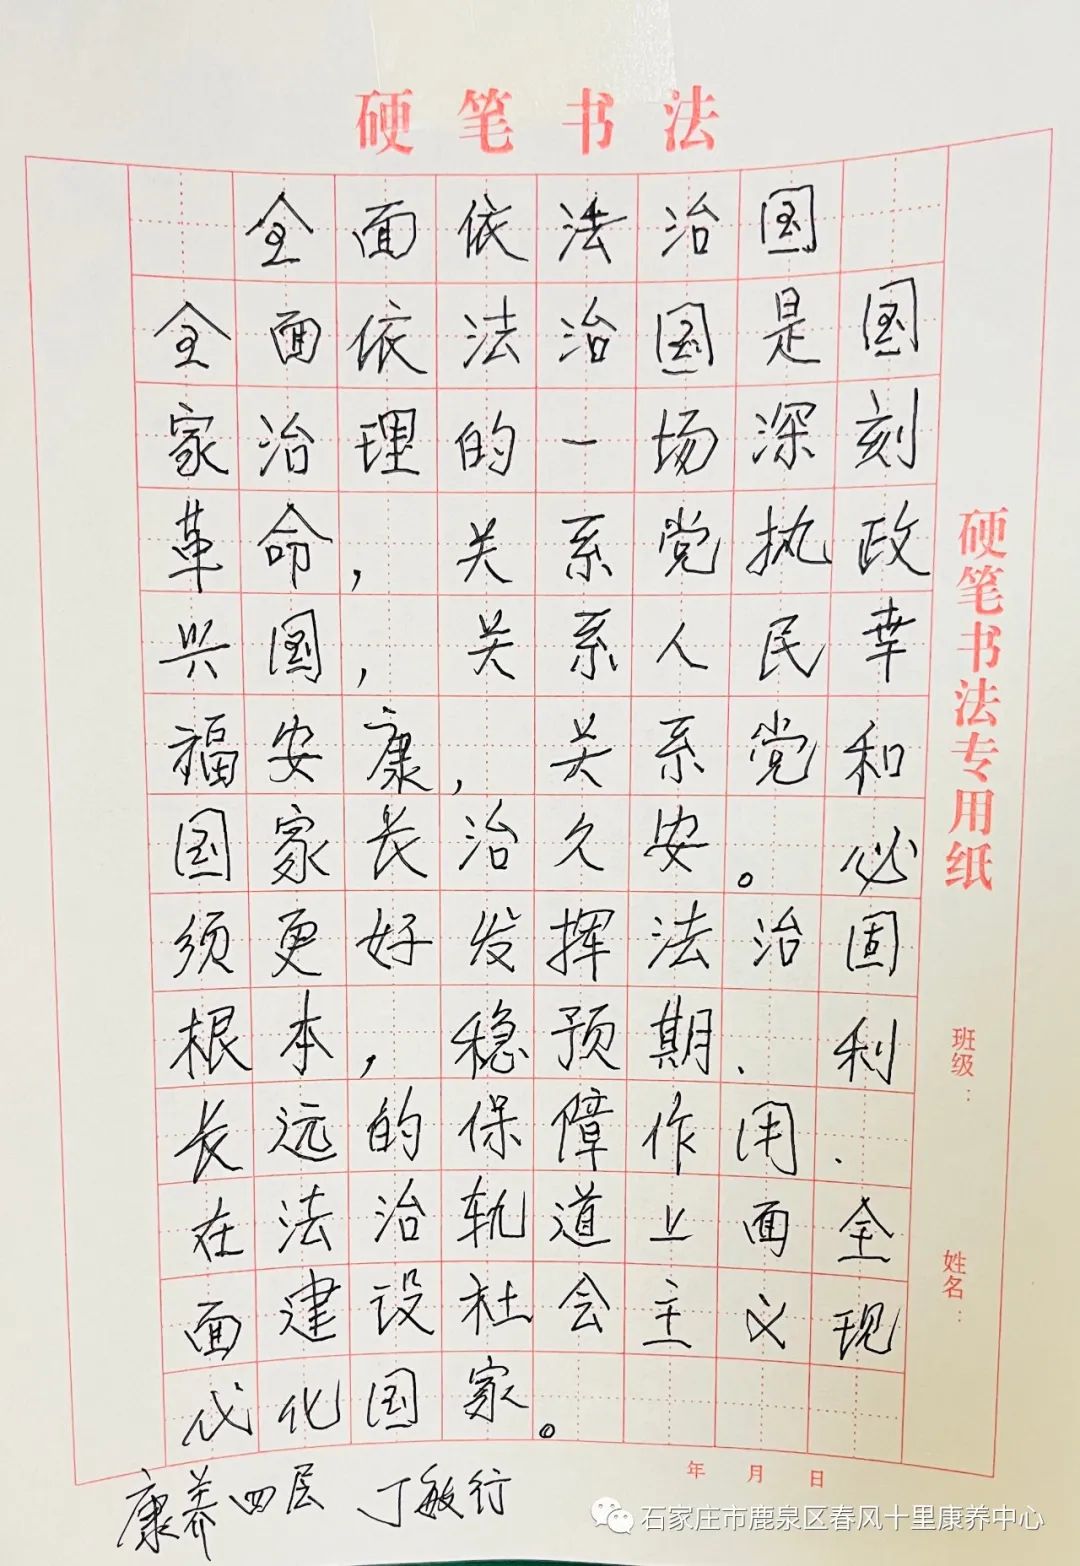 硬笔书法
全面依法治国
全面依法治国是国
家治理的一场深刻
革命，关系党执政
兴国，关系人民幸
福安康，关系党和
国家长治久安。必
须更好发挥法治固
根本，稳预期、利
长远的保障作用、
在法治轨道上面全
面建设社会主义现
代化国家。
康养四层 丁敏行
年 月 日
硬笔书法专用纸
班级：
姓名：
石家庄市鹿泉区春风十里康养中心